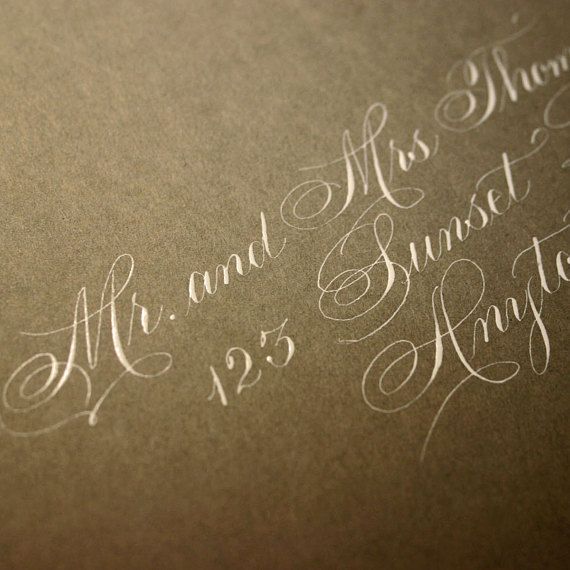 Mr. and Mrs Thom
123 Sunset
Anyto